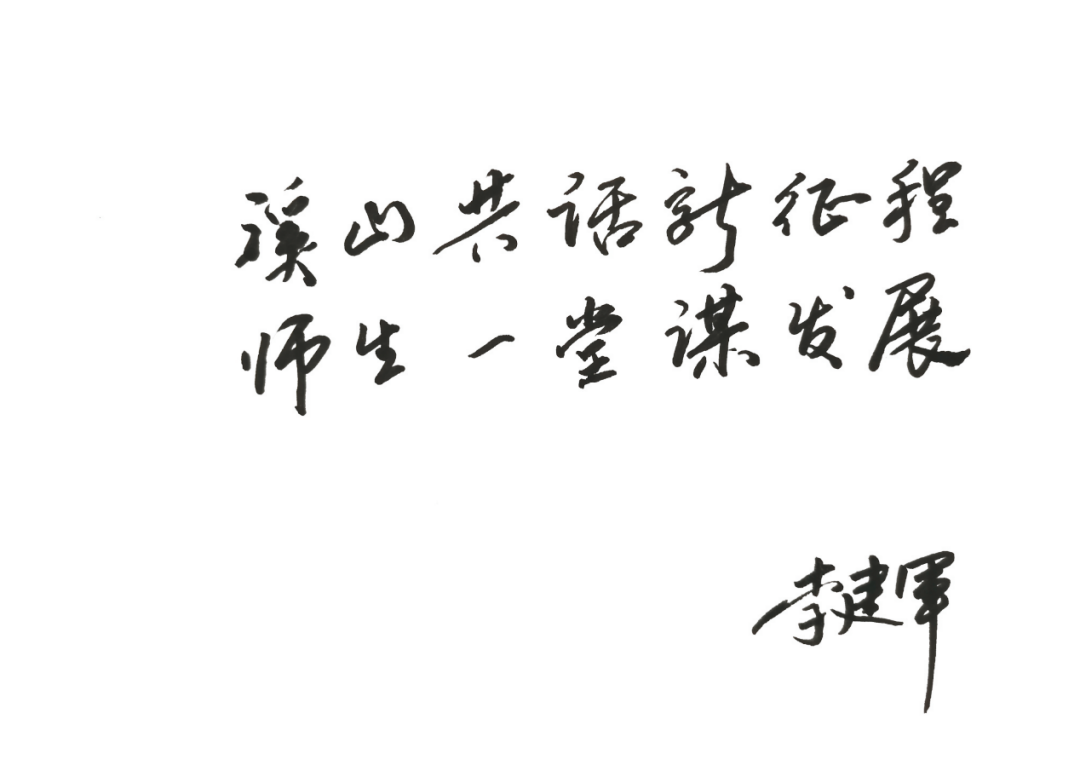 溪山共话新征程
师生一堂谋发展
李建军